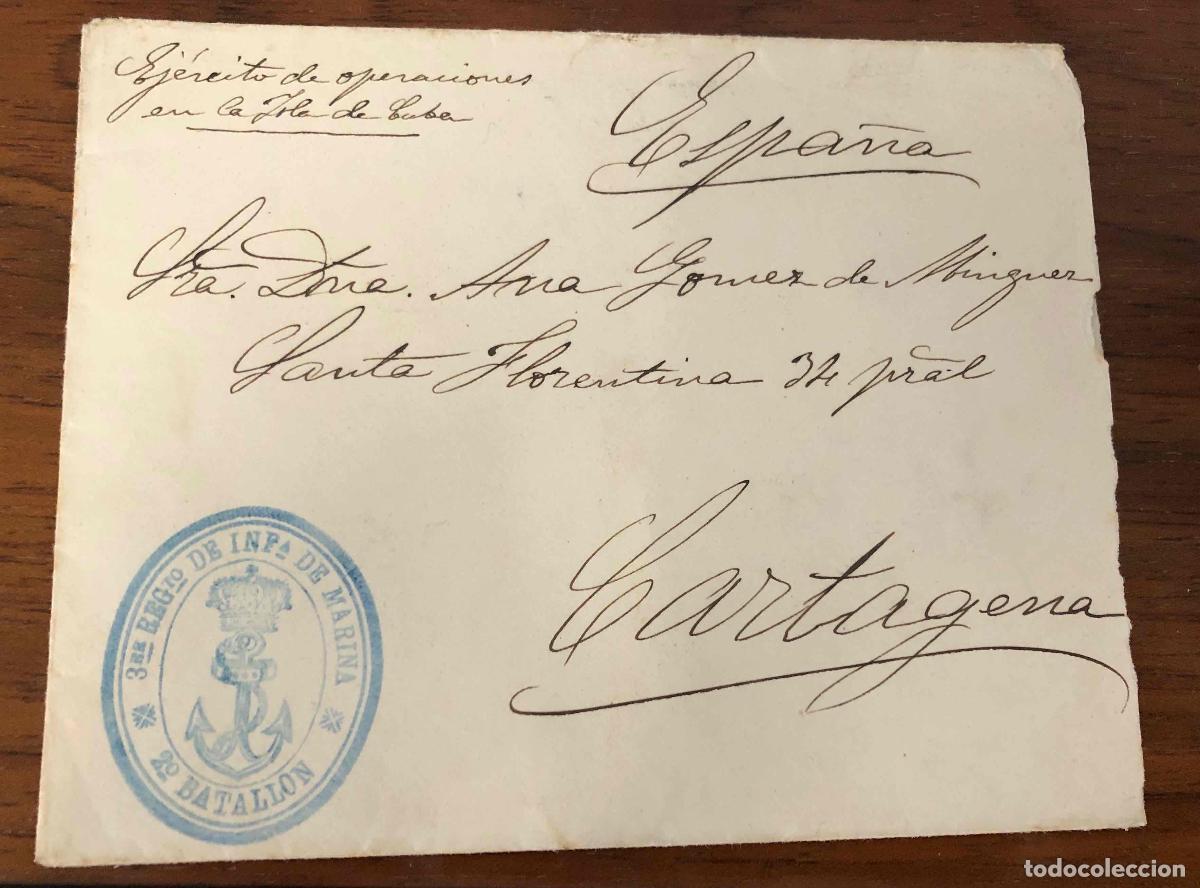 Ejército de operaciones
en la Isla de Cuba
España
Sra. Dña. Ana Gomez de Minguez
Santa Florentina 34 pñal
Cartagena
3ER REGTO DE INFA DE MARINA
2º BATALLON
todocoleccion